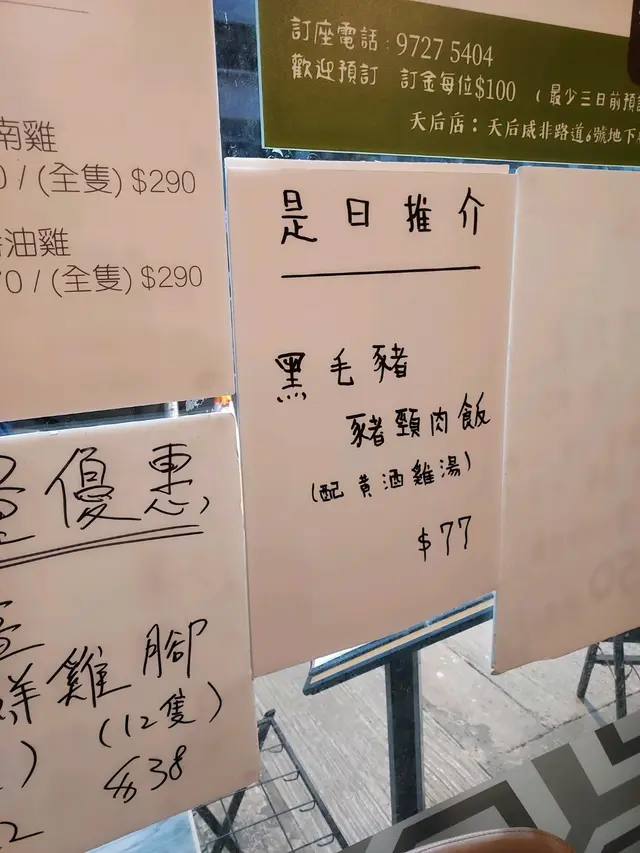 訂座電話：9727 5404
歡迎預訂 訂金每位$100 （最少三日前預訂
天后店：天后威非路道6號地下
南雞
0 / (全隻) $290
油雞
70 / (全隻) $290
是日推介
黑毛豬
豬頸肉飯
(配黃酒雞湯)
$77
優惠
雞腳
(12隻)
$38